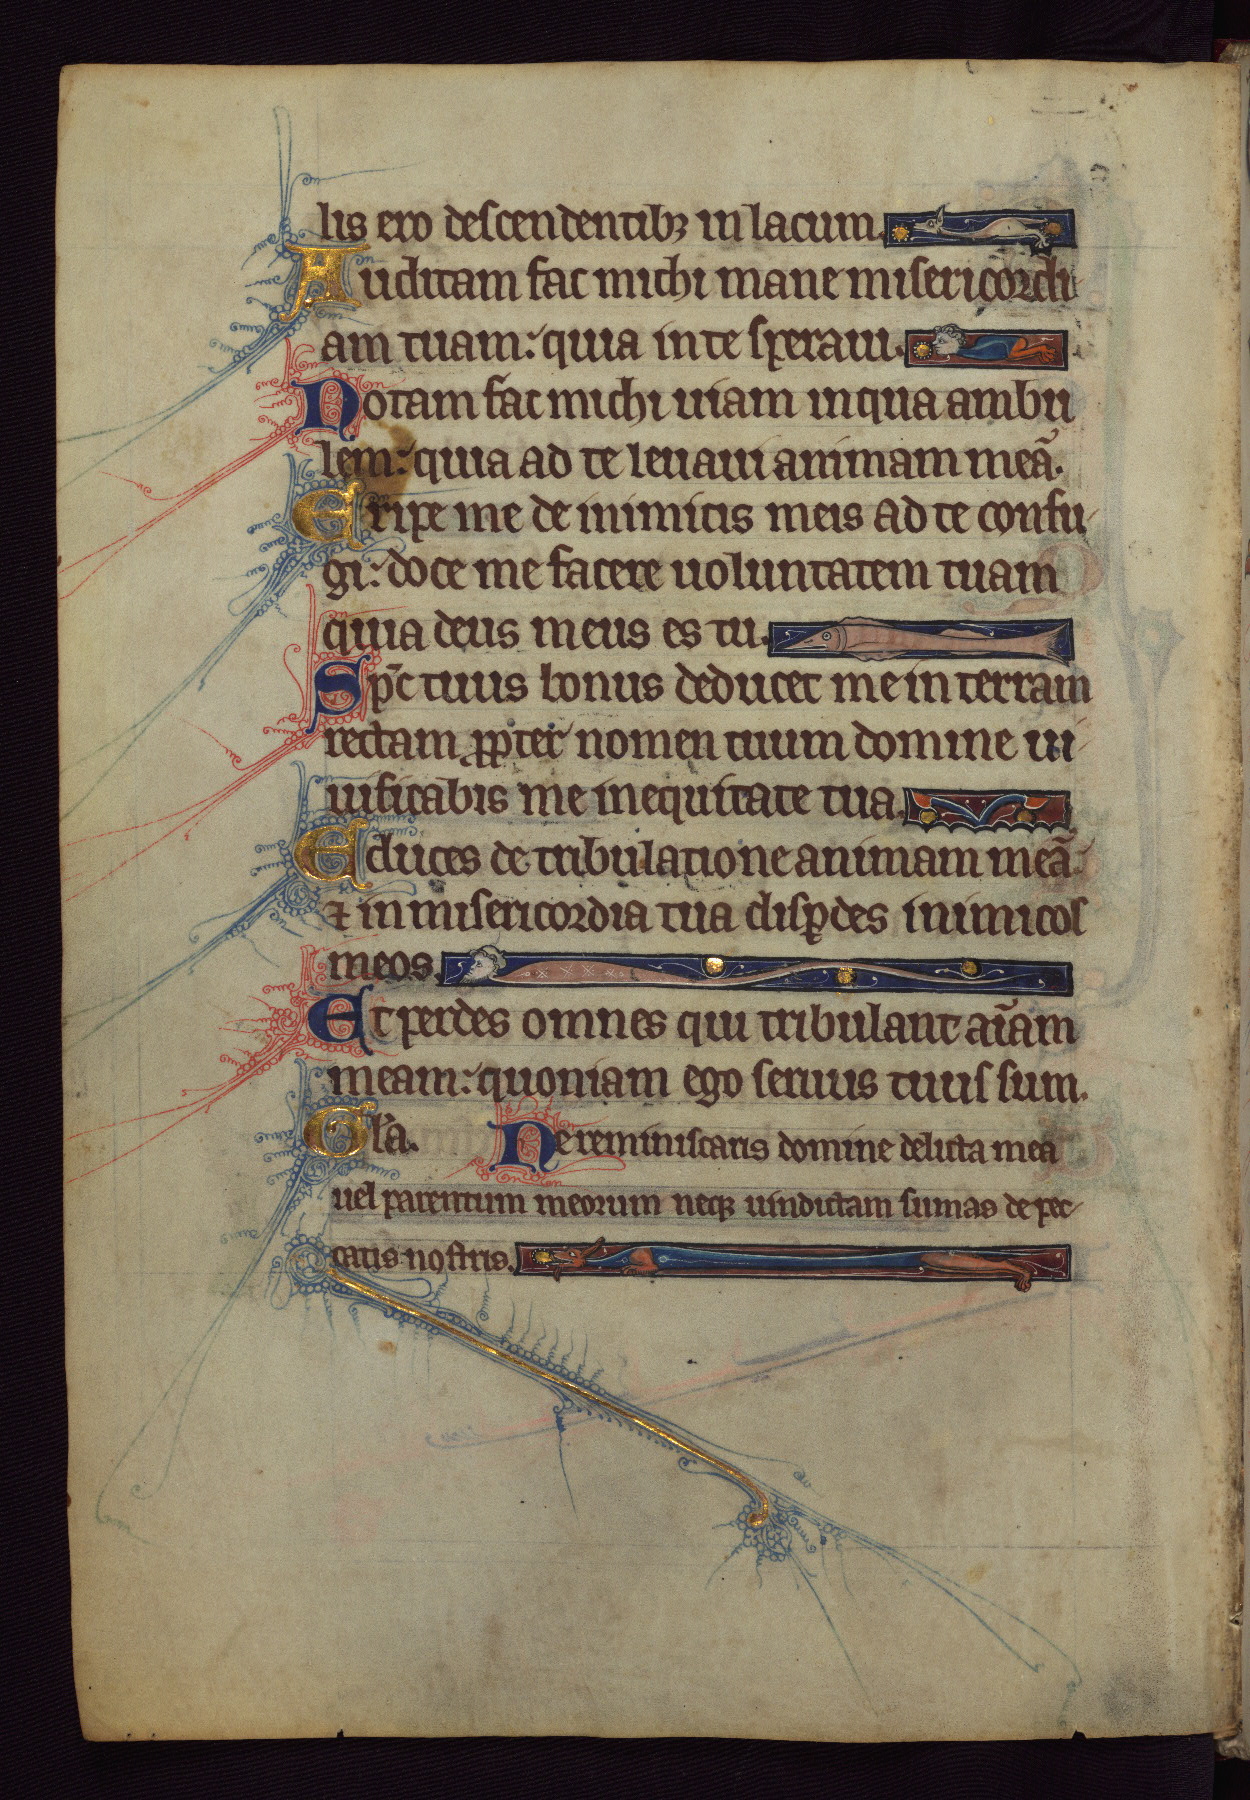 lis ero descendentibꝫ in lacum.
Auditam fac michi mane misericordi
am tuam: quia in te speraui.
Notam fac michi uiam in qua ambu
lem: quia ad te leuaui animam meā.
Eripe me de inimicis meis ad te confu
gi: doce me facere uoluntatem tuam
quia deus meus es tu.
Sp̄c tuus bonus deducet me in terram
rectam ꝓpter nomen tuum domine ui
uificabis me in equitate tua.
Educes de tribulatione animam meā.
⁊ in misericordia tua disꝑdes inimicos
meos.
Et perdes omnes qui tribulant aīam
meam: quoniam ego seruus tuus sum.
Glā. Ne reminiscaris domine delicta mea
uel parentum meorum neqꝫ uindictam sumas de pec
catis nostris.